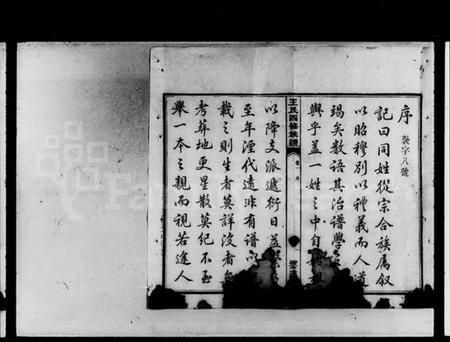 序
敦字八號
記曰同姓從宗合族屬叙
以昭穆別以禮義而人道
竭矣數語其治譜學
興乎蓋一姓之中自親
王氏四修族譜
序
以降支派遞衍日益
至年湮代遠非有譜以
載之則生者莫詳沒者無
考葬地更星散莫紀不至
舉一本之親而視若途人